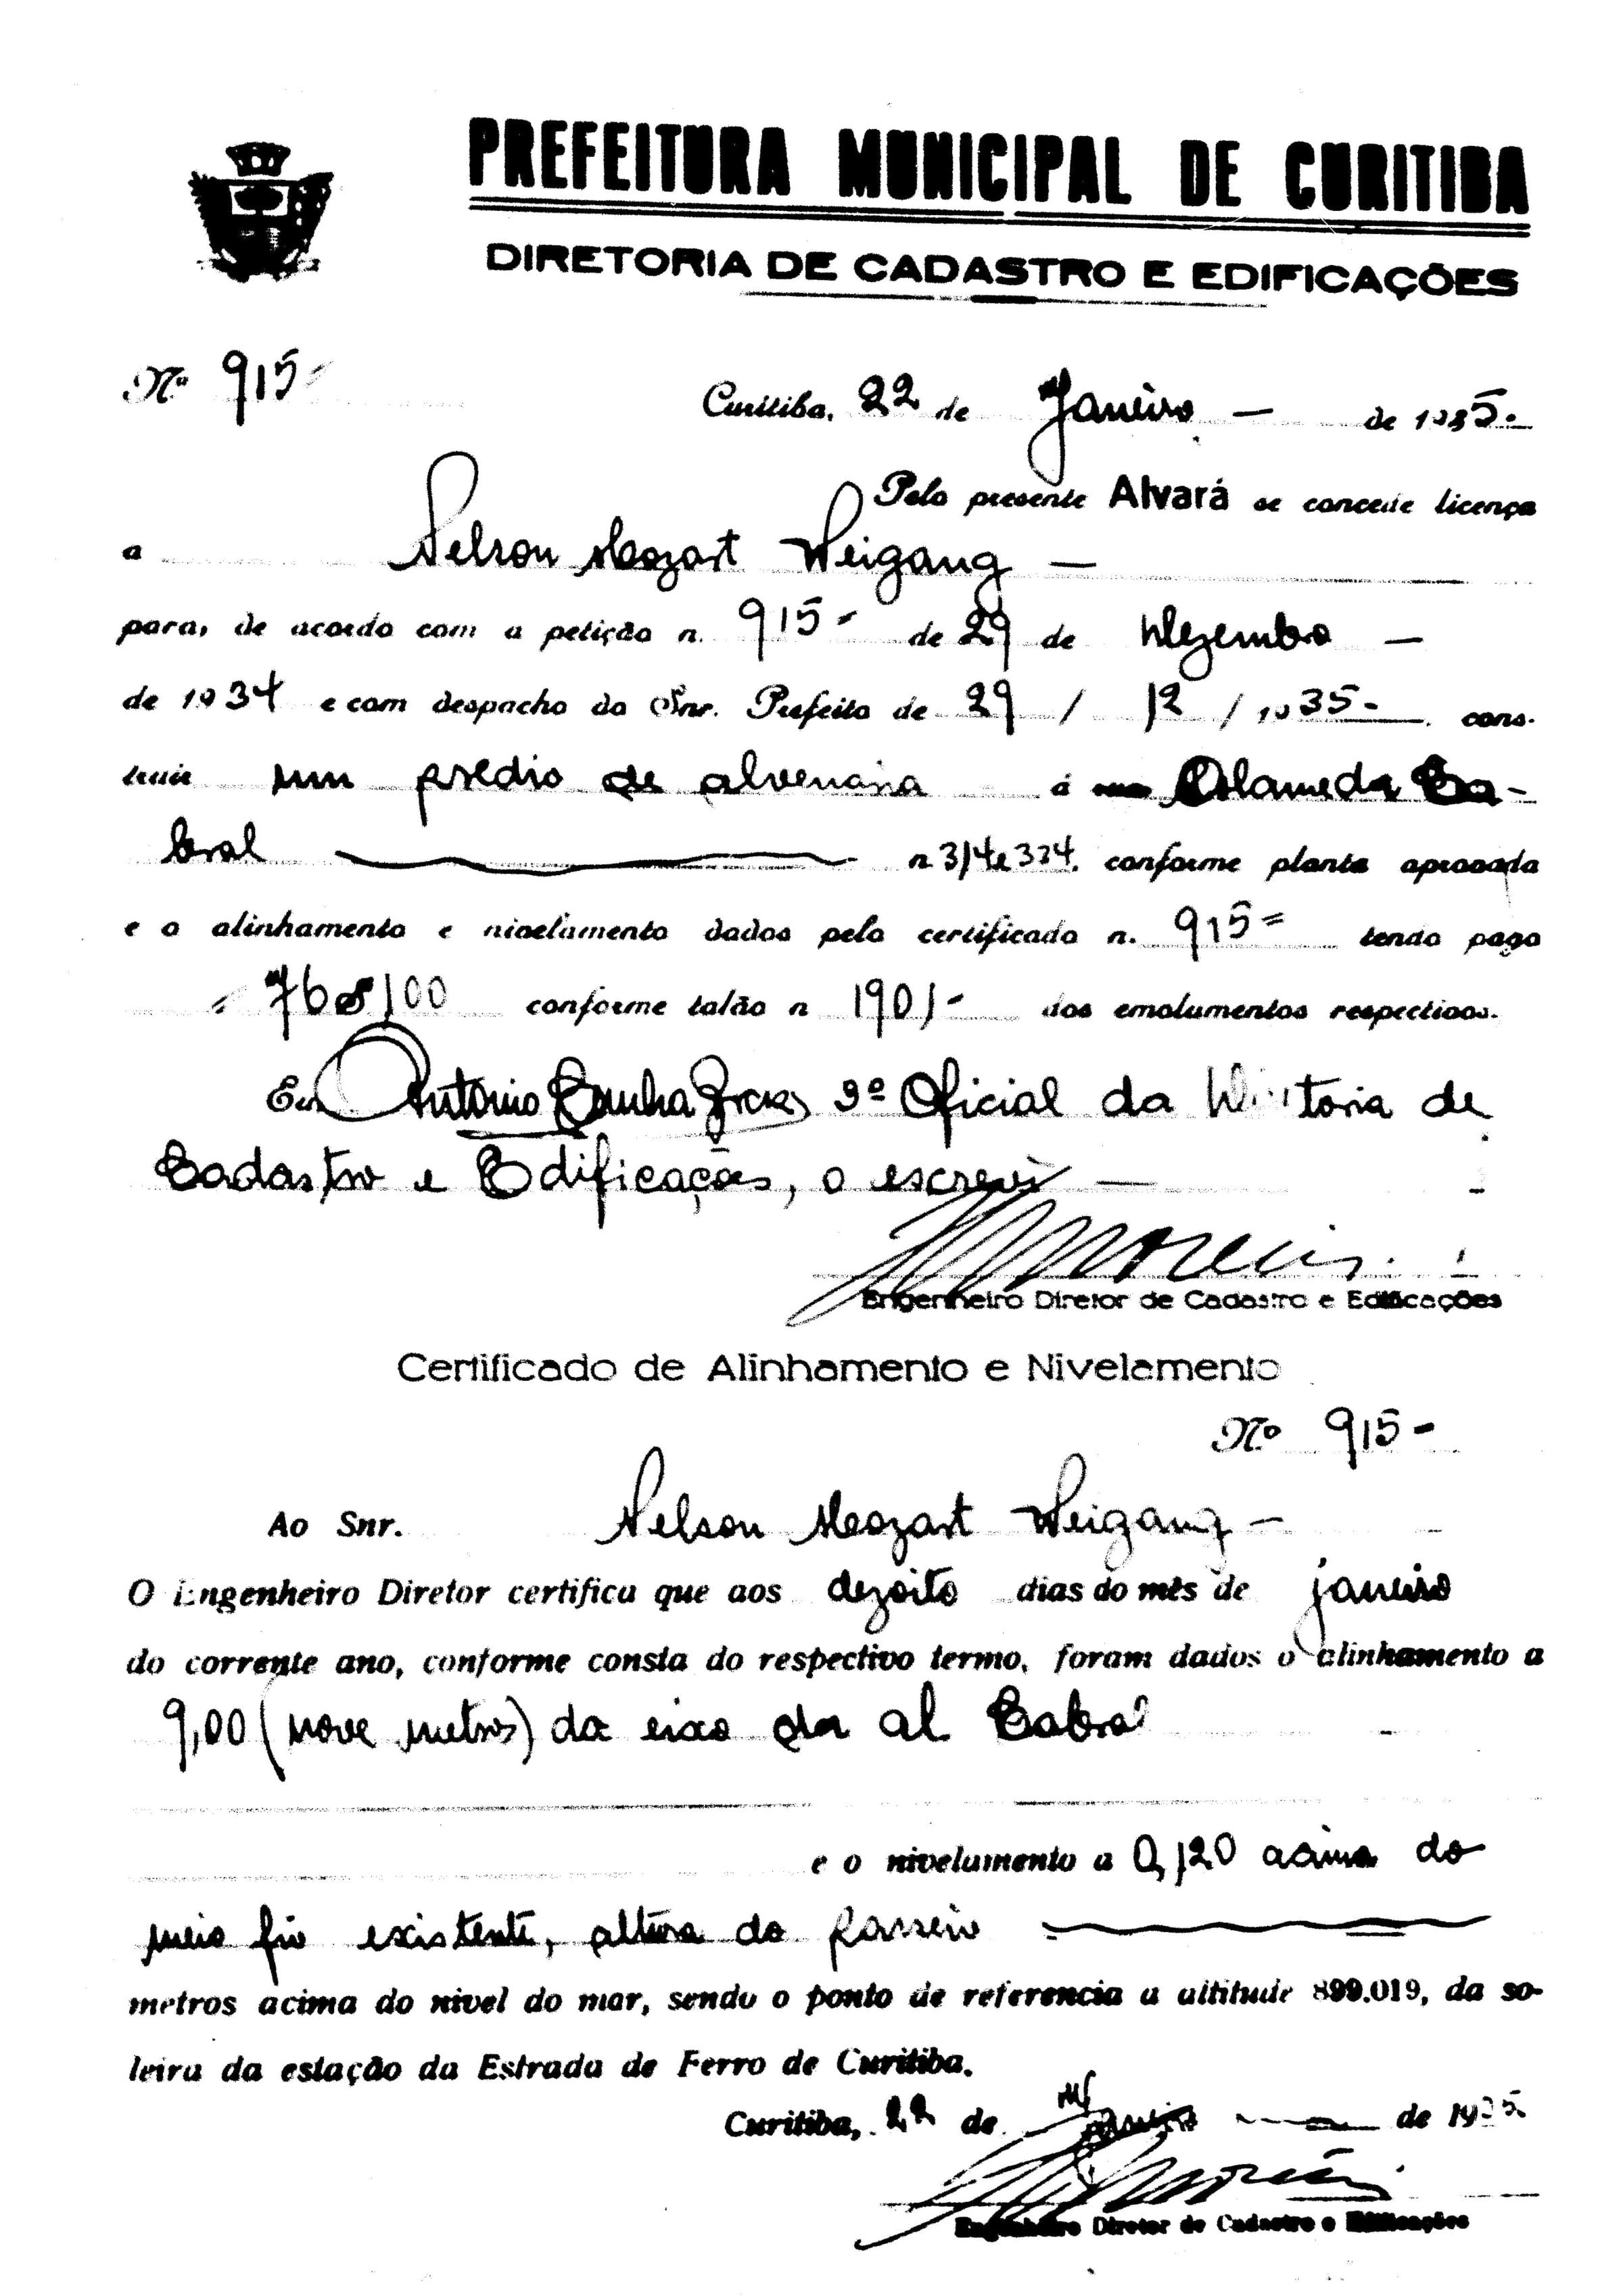 PREFEITURA MUNICIPAL DE CURITIBA
DIRETORIA DE CADASTRO E EDIFICAÇÕES
Nº 915-
Curitiba, 22 de Janeiro - de 1935-
Pelo presente Alvará se concede licença
a Nelson Mozart Weigang -
para, de acordo com a petição n. 915- de 29 de Dezembro -
de 1934 e com despacho do Snr. Prefeito de 29 / 12 / 1935- cons-
truir um predio de alvenaria á Alameda Ca-
bral n 314 e 324, conforme planta aprovada
e o alinhamento e nivelamento dados pelo certificado n. 915= tendo pago
768/00 conforme talão n 1901- dos emolumentos respectivos.
Eu Antonio Cunha 3º Oficial da Diretoria de
Cadastro e Edificações, o escrevi -
Engenheiro Diretor de Cadastro e Edificações
Certificado de Alinhamento e Nivelamento
Nº 915-
Ao Snr. Nelson Mozart Weigang -
O Engenheiro Diretor certifica que aos dezoito dias do mês de janeiro
do corrente ano, conforme consta do respectivo termo, foram dados o alinhamento a
9,00 (nove metros) da eixo da al Cabral
e o nivelamento a 0,120 acima do
meio fio existente, altura do passeio
metros acima do nivel do mar, sendo o ponto de referencia a altitude 899.019, da so-
leira da estação da Estrada de Ferro de Curitiba.
Curitiba, 22 de Janeiro de 1935
Engenheiro Diretor de Cadastro e Edificações